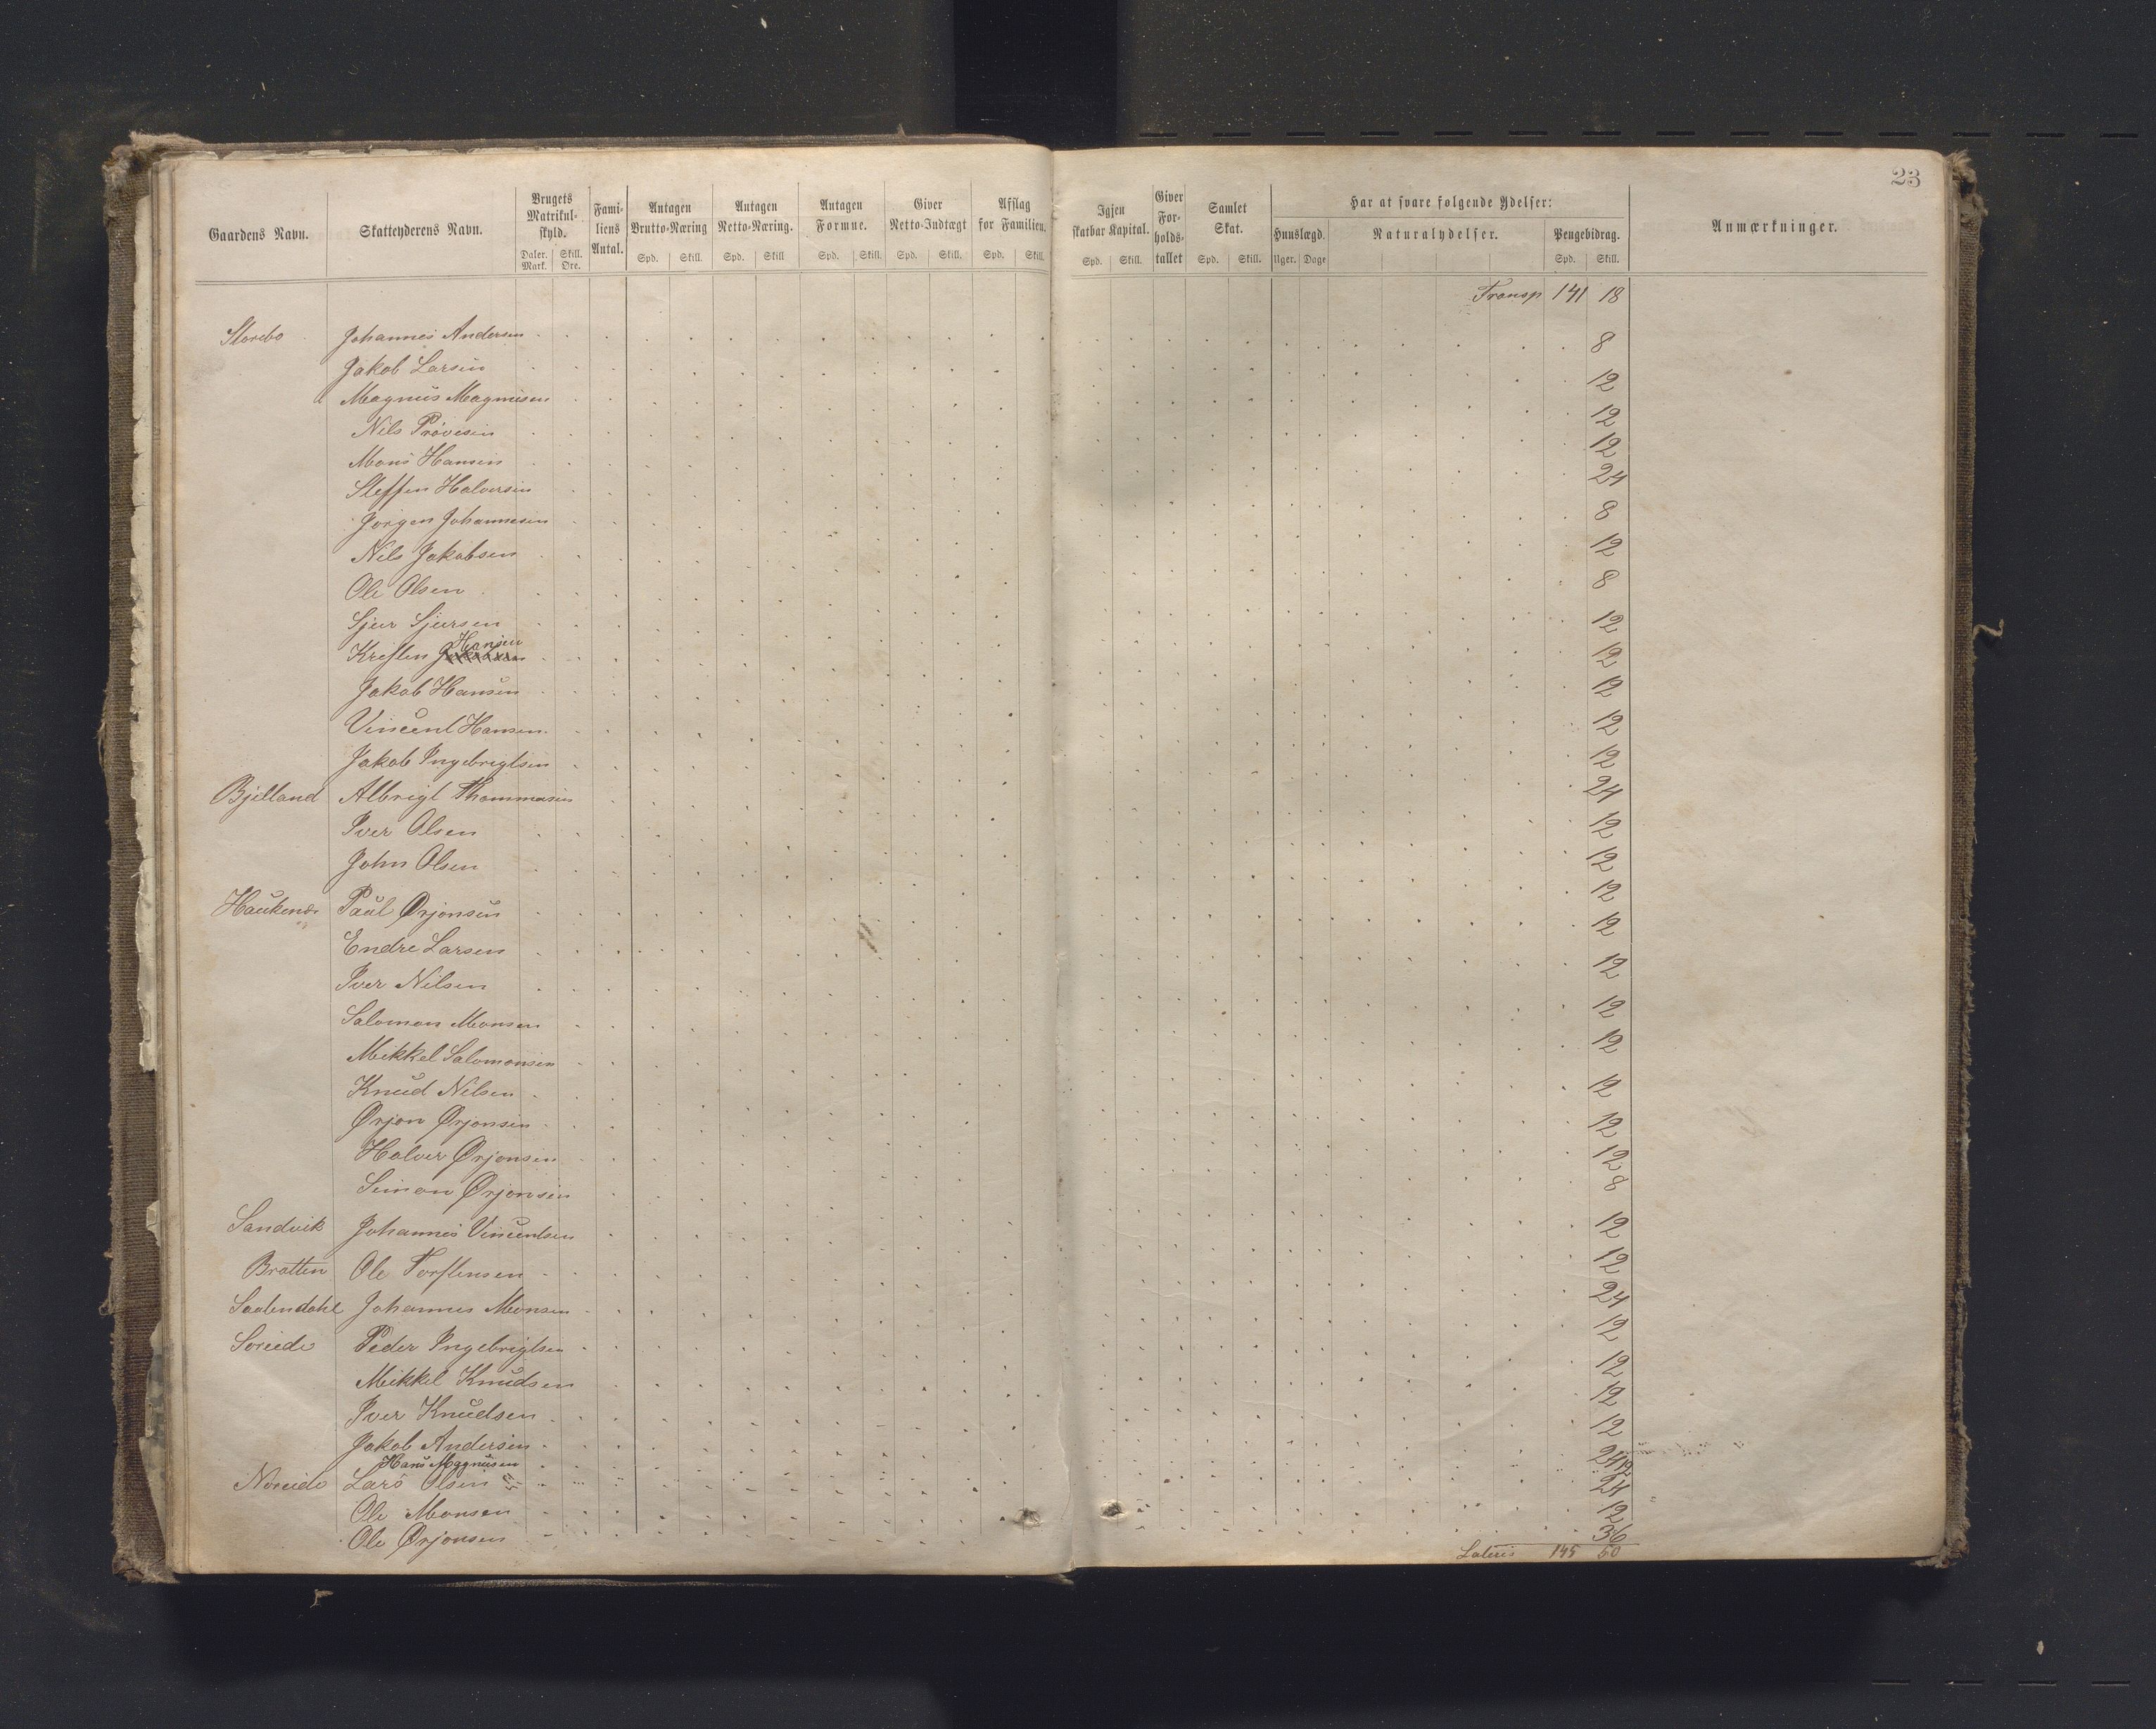 23
Gaardens Navn. Skatteyderens Navn. Brugets Matrikul-skyld. Fami-liens Antal. Antagen Brutto-Næring Antagen Netto-Næring. Antagen Formue. Giver Netto-Indtægt Afslag for Familien. Igjen skatbar Kapital. Giver For-holds-tallet Samlet Skat. Har at svare følgende Ydelser: Anmærkninger.
Huuslægd. Naturalydelser. Pengebidrag.
Daler. Mark. Skill. Ore. Spd. Skill. Spd. Skill Spd. Skill. Spd. Skill. Spd. Skill. Spd. Skill. Spd. Skill. Uger. Dage Spd. Skill.
Transp 141 18
Storebø Johannes Andersen 8
Jakob Larsen 12
Magnus Magnusen 12
Nils Prøvesen 12
Mons Hansen 24
Steffen Halversen 8
Jørgen Johannesen 12
Nils Jakobsen 8
Ole Olsen 12
Sjur Sjursen 12
Kresten Hansen 12
Jakob Hansen 12
Vincent Hansen 12
Jakob Ingebrigtsen 24
Bjelland Albrigt Thommasen 12
Iver Olsen 12
John Olsen 12
Haukenæs Paul Ørjonsen 12
Endre Larsen 12
Iver Nilsen 12
Salomon Monsen 12
Mikkel Salomonsen 12
Knud Nilsen 12
Ørjon Ørjonsen 12
Halver Ørjonsen 8
Simon Ørjonsen 12
Sandvik Johannes Vincentsen 12
Bratten Ole Torstensen 24
Saalendahl Johannes Monsen 12
Søreide Peder Ingebrigtsen 12
Mikkel Knudsen 12
Iver Knudsen 12
Jakob Andersen 24
Hans Magnusen 12
Noreide Lars Olsen 24
Ole Monsen 12
Ole Ørjonsen 36
Lateris 145 50